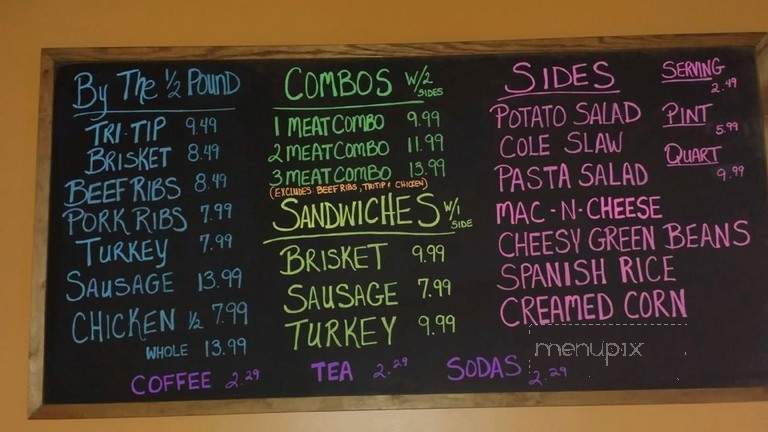 By The 1/2 Pound
TRI-TIP 9.49
BRISKET 8.49
BEEF RIBS 8.49
PORK RIBS 7.99
TURKEY 7.99
SAUSAGE 13.99
CHICKEN 1/2 7.99
WHOLE 13.99
COMBOS W/2 SIDES
1 MEAT COMBO 9.99
2 MEAT COMBO 11.99
3 MEAT COMBO 13.99
(EXCLUDES BEEF RIBS, TRITIP & CHICKEN)
SANDWICHES W/1 SIDE
BRISKET 9.99
SAUSAGE 7.99
TURKEY 9.99
SIDES
POTATO SALAD
COLE SLAW
PASTA SALAD
MAC-N-CHEESE
CHEESY GREEN BEANS
SPANISH RICE
CREAMED CORN
SERVING
2.49
PINT
5.99
QUART
9.99
COFFEE 2.29 TEA 2.29 SODAS 2.29
menupix